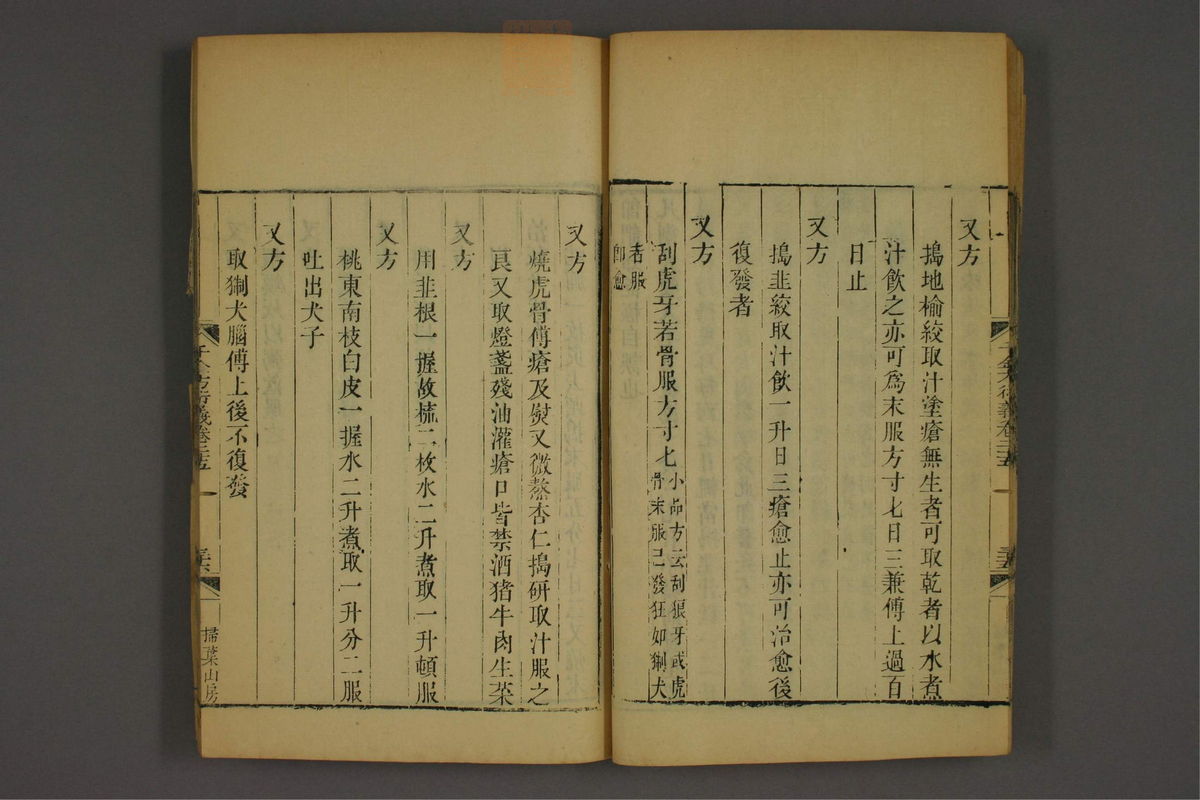 又方
搗地榆絞取汁塗瘡無生者可取乾者以水煮
汁飲之亦可為末服方寸匕日三兼傅上過百
日止
又方
搗韭絞取汁飲一升日三瘡愈止亦可治愈後
復發者
又方
刮虎牙若骨服方寸匕小品方云刮狼牙或虎
骨末服已發狂如猘犬
者服
即愈
又方
燒虎骨傅瘡及熨又微熬杏仁搗研取汁服之
良又取燈盞殘油灌瘡口皆禁酒猪牛肉生菜
又方
用韭根一握故梳二枚水二升煮取一升頓服
又方
桃東南枝白皮一握水二升煮取一升分二服
吐出犬子
又方
取猘犬腦傅上後不復發
千金方衍義卷二十五
掃葉山房